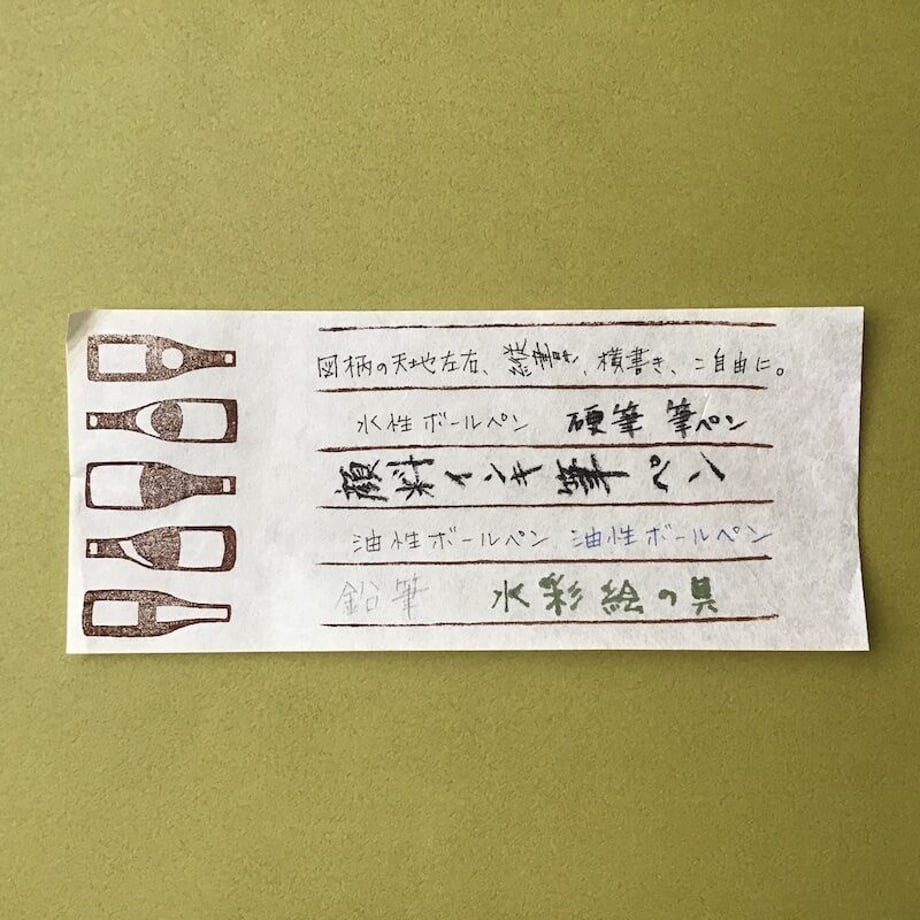 図柄の天地左右、縦書き、横書き、ご自由に。
水性ボールペン 硬筆 筆ペン
顔料インキ筆ペン
油性ボールペン 油性ボールペン
鉛筆 水彩絵の具